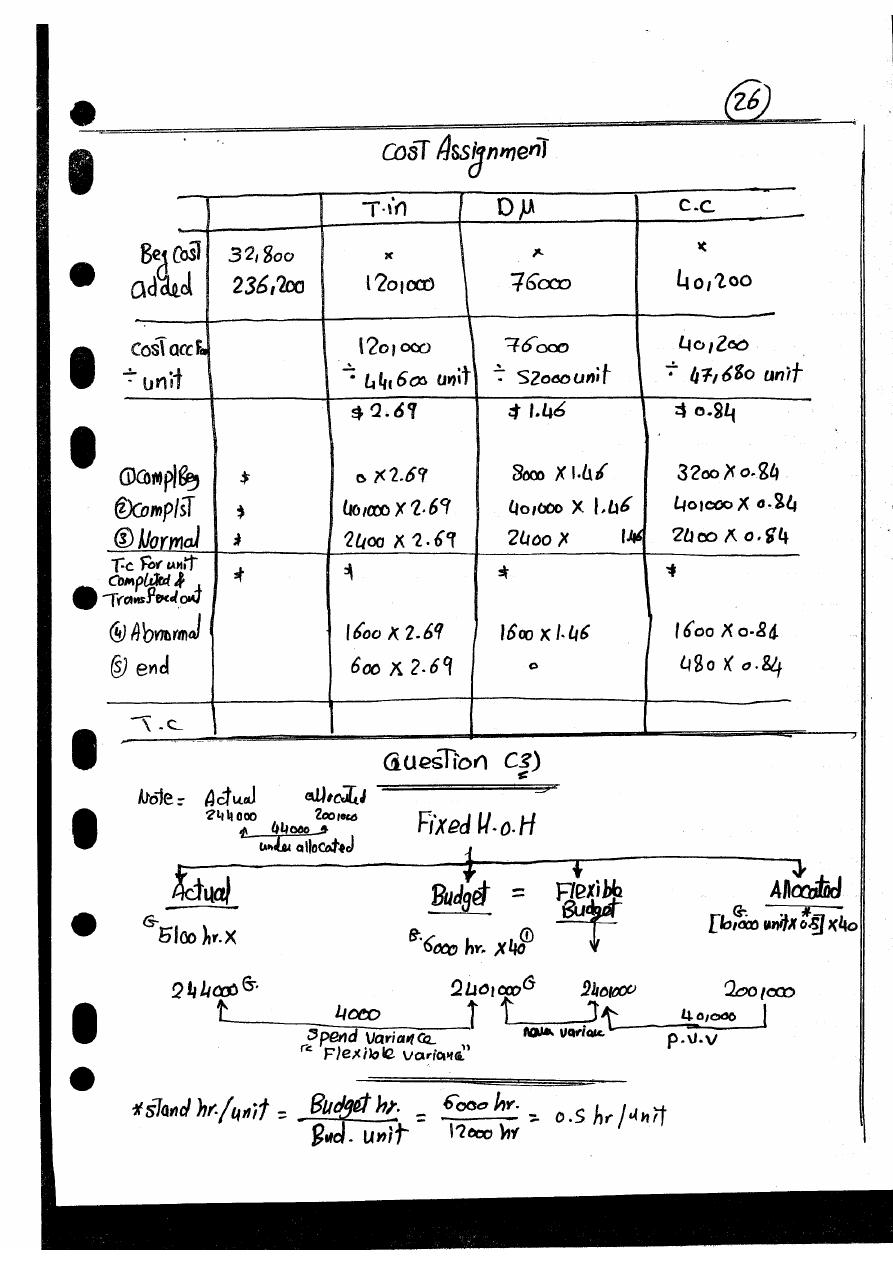 26
Cost Assignment
T.in DM C.C
Beg Cost 32,800 × × ×
added 236,200 120,000 76000 40,200
Cost acc For 120,000 76000 40,200
÷ unit ÷ 44,600 unit ÷ 52000 unit ÷ 47,680 unit
$ 2.69 $ 1.46 $ 0.84
① Comp/Beg $ 0 X 2.69 8000 X 1.46 3200 X 0.84
② Comp/ST $ 40,000 X 2.69 40,000 X 1.46 40,000 X 0.84
③ Normal $ 2400 X 2.69 2400 X 1.46 2400 X 0.84
T.c For unit
Completed &
Transfered out $ $ $ $
④ Abnormal 1600 X 2.69 1600 X 1.46 1600 X 0.84
⑤ end 600 X 2.69 0 480 X 0.84
T.C
Question C3)
Note = Actual allocated
244000 200,000
44000
under allocated
Fixed M.O.H
Actual Budget = Flexible Budget Allocated
G. 5100 hr. X B. 6000 hr. X 40 ① [10,000 unit X 0.5*] X 40
244000 G. 240,000 G 240,000 200,000
4000 40,000
Spend Variance Never variance P.V.V
" Flexible Variance"
* Stand hr./unit = Budget hr. / Bud. unit = 6000 hr. / 12000 hr = 0.5 hr/unit